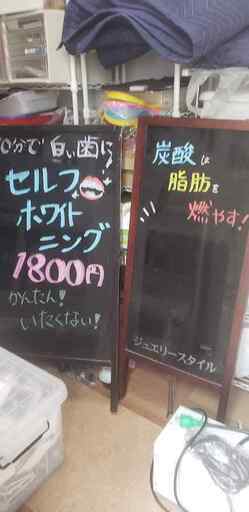 0分で白い歯に!
セルフ
ホワイト
ニング
1800円
かんたん!
いたくない!
炭酸は
脂肪を
燃やす!
ジュエリースタイル